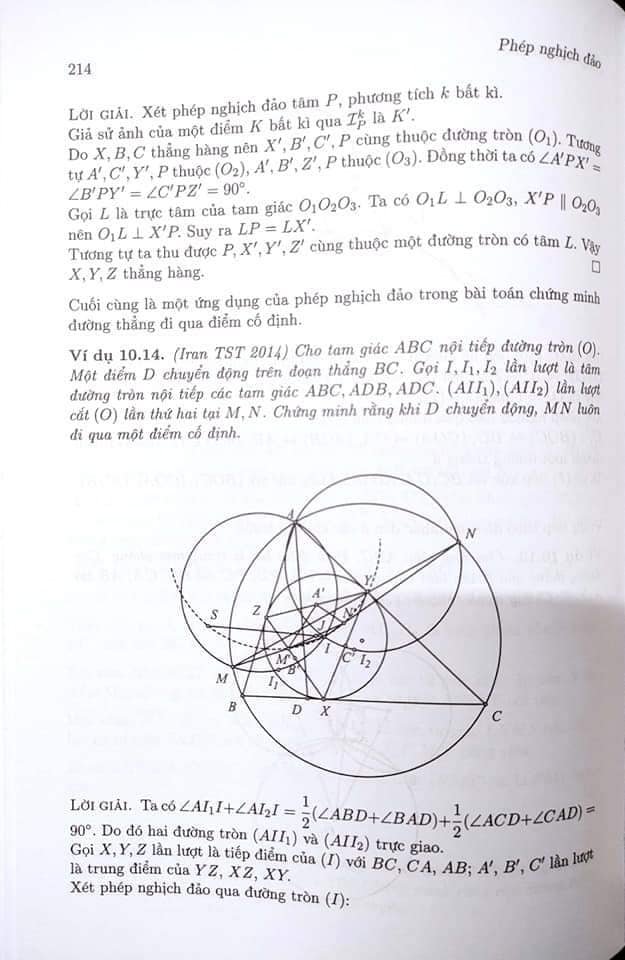 Phép nghịch đảo
214
LỜI GIẢI. Xét phép nghịch đảo tâm P, phương tích k bất kì.
Giả sử ảnh của một điểm K bất kì qua I_P^k là K'.
Do X, B, C thẳng hàng nên X', B', C', P cùng thuộc đường tròn (O₁). Tương
tự A', C', Y', P thuộc (O₂), A', B', Z', P thuộc (O₃). Đồng thời ta có ∠A'PX' =
∠B'PY' = ∠C'PZ' = 90°.
Gọi L là trực tâm của tam giác O₁O₂O₃. Ta có O₁L ⊥ O₂O₃, X'P ∥ O₂O₃
nên O₁L ⊥ X'P. Suy ra LP = LX'.
Tương tự ta thu được P, X', Y', Z' cùng thuộc một đường tròn có tâm L. Vậy
X, Y, Z thẳng hàng. □
Cuối cùng là một ứng dụng của phép nghịch đảo trong bài toán chứng minh
đường thẳng đi qua điểm cố định.
Ví dụ 10.14. (Iran TST 2014) Cho tam giác ABC nội tiếp đường tròn (O).
Một điểm D chuyển động trên đoạn thẳng BC. Gọi I, I₁, I₂ lần lượt là tâm
đường tròn nội tiếp các tam giác ABC, ADB, ADC. (AII₁), (AII₂) lần lượt
cắt (O) lần thứ hai tại M, N. Chứng minh rằng khi D chuyển động, MN luôn
đi qua một điểm cố định.
A
N
Y
A'
Z
N'
S
J
I
M'
B'
C'
I₂
M
I₁
B
D
X
C
LỜI GIẢI. Ta có ∠AI₁I+∠AI₂I = 1/2(∠ABD+∠BAD)+1/2(∠ACD+∠CAD) =
90°. Do đó hai đường tròn (AII₁) và (AII₂) trực giao.
Gọi X, Y, Z lần lượt là tiếp điểm của (I) với BC, CA, AB; A', B', C' lần lượt
là trung điểm của YZ, XZ, XY.
Xét phép nghịch đảo qua đường tròn (I):